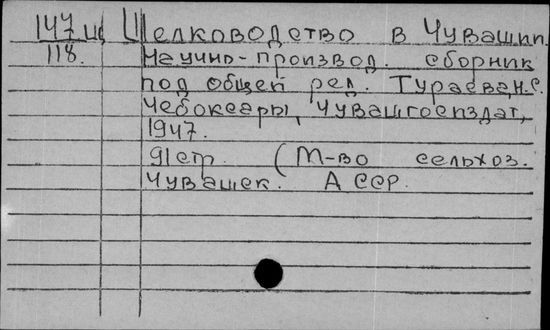 147ш Шелководство в Чувашии.
118. Научно-производ. сборник
под общей ред. Тураева Н.С.
Чебоксары, Чувашгосиздат,
1947.
91стр. (М-во сельхоз.
Чувашск. АССР.